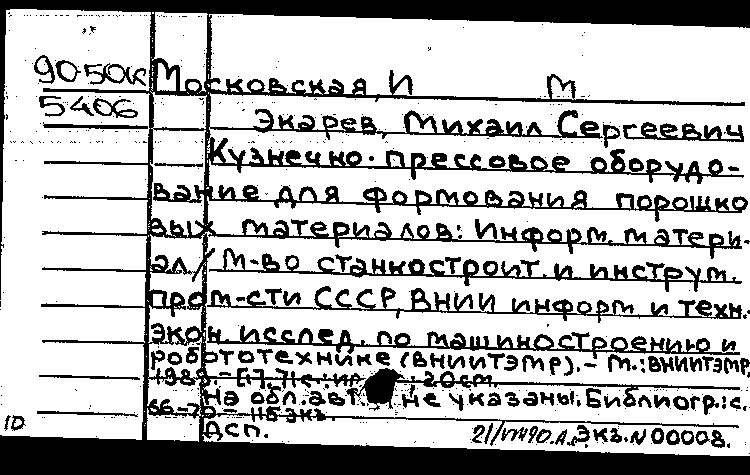 90-50к Московская, И М
5406 Экарев, Михаил Сергеевич
Кузнечно-прессовое оборудо-
вание для формования порошко
вых материалов: Информ. матери-
ал / М-во станкостроит. и инструм.
пром-сти СССР, ВНИИ информ и техн.-
экон. исслед. по машиностроению и
робототехнике (ВНИИТЭМР).- М.: ВНИИТЭМР,
1989.- 77 с.: ил ; 20 см.
На обл. авт. не указаны. Библиогр.: с.
66-75 - 115 экз.
ДСП. Экз. N 00008.
10